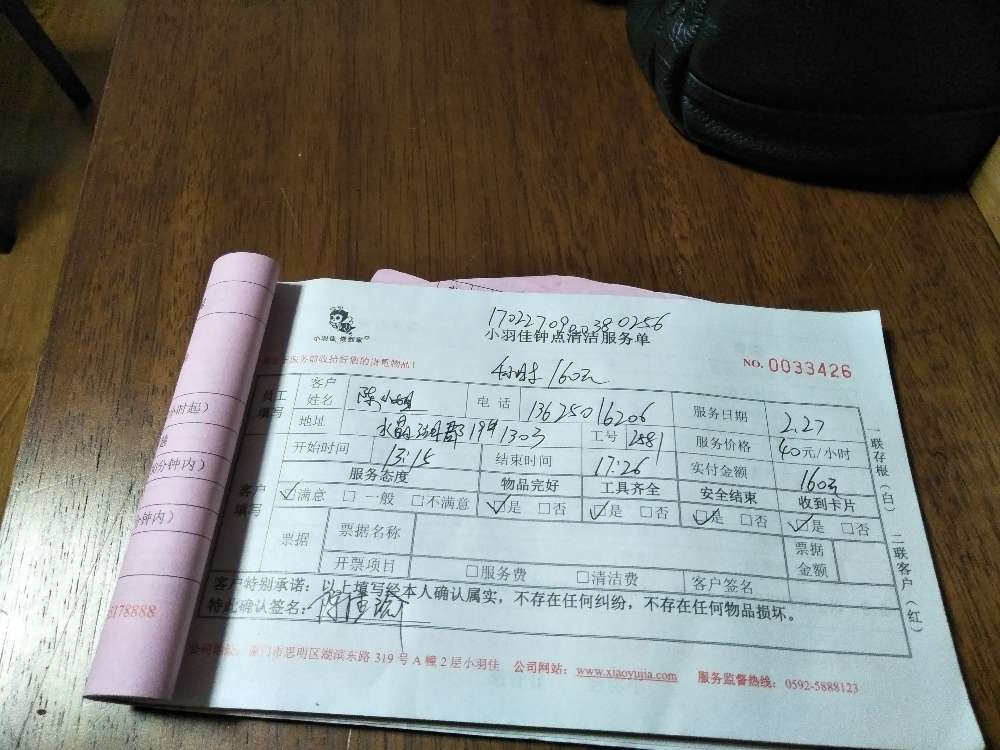 1702270900380256
小羽佳 搜到家
小羽佳钟点清洁服务单
NO. 0033426
4小时 160元
员工填写 客户姓名 陈小姐 电话 13625016206 服务日期 2.27
地址 水晶 19# 1303 工号 2881 服务价格 40元/小时
开始时间 13:15 结束时间 17:26 实付金额 160元
客户填写 服务态度 物品完好 工具齐全 安全结束 收到卡片
☑满意 □一般 □不满意 ☑是 □否 ☑是 □否 ☑是 □否 ☑是 □否
票据 票据名称 票据金额
开票项目 □服务费 □清洁费 客户签名
客户特别承诺：以上填写经本人确认属实，不存在任何纠纷，不存在任何物品损坏。
特此确认签名：
厦门市思明区湖滨东路 319 号 A 幢 2 层小羽佳 公司网站：www.xiaoyujia.com 服务监督热线：0592-5888123
一联存根（白） 二联客户（红）
小时起）
分钟内）
钟内）
178888